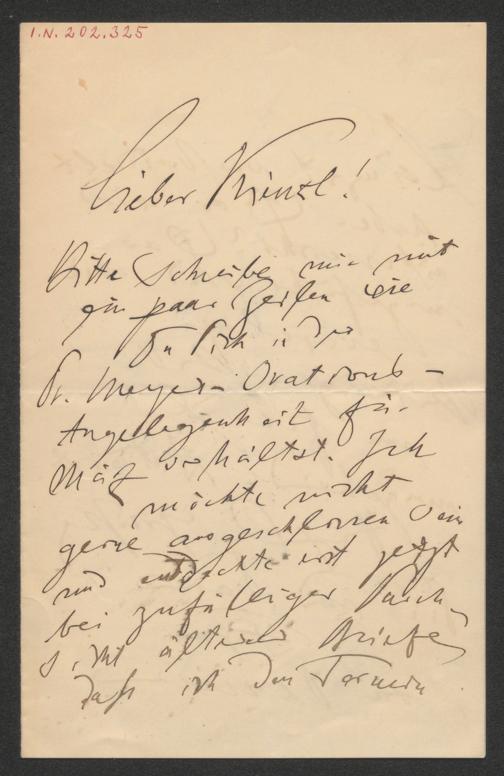 I.N. 202.325
Lieber Kienzl!
Bitte schreibe mir mit
ein paar Zeilen wie
Du Dich in der
Dr. Meyer-Ovations-
Angelegenheit für
März verhältst. Ich
möchte nicht
gerne ausgeschlossen sein
und entdeckte erst jetzt
bei zufälliger Durch-
sicht älterer Briefe,
daß ich den Termin